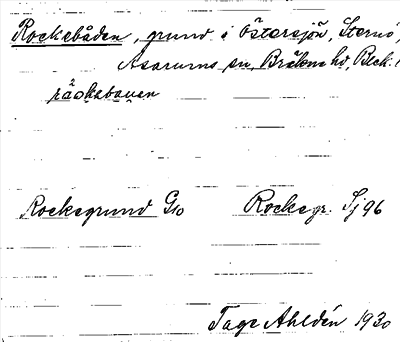 Rockabåden, grund i Östersjön, Sternö,
Asarums sn, Bräkne hd, Blek.
råckabauen
Rockegrund Gio Rockegr. Sj 96
Tage Ahldén 1930